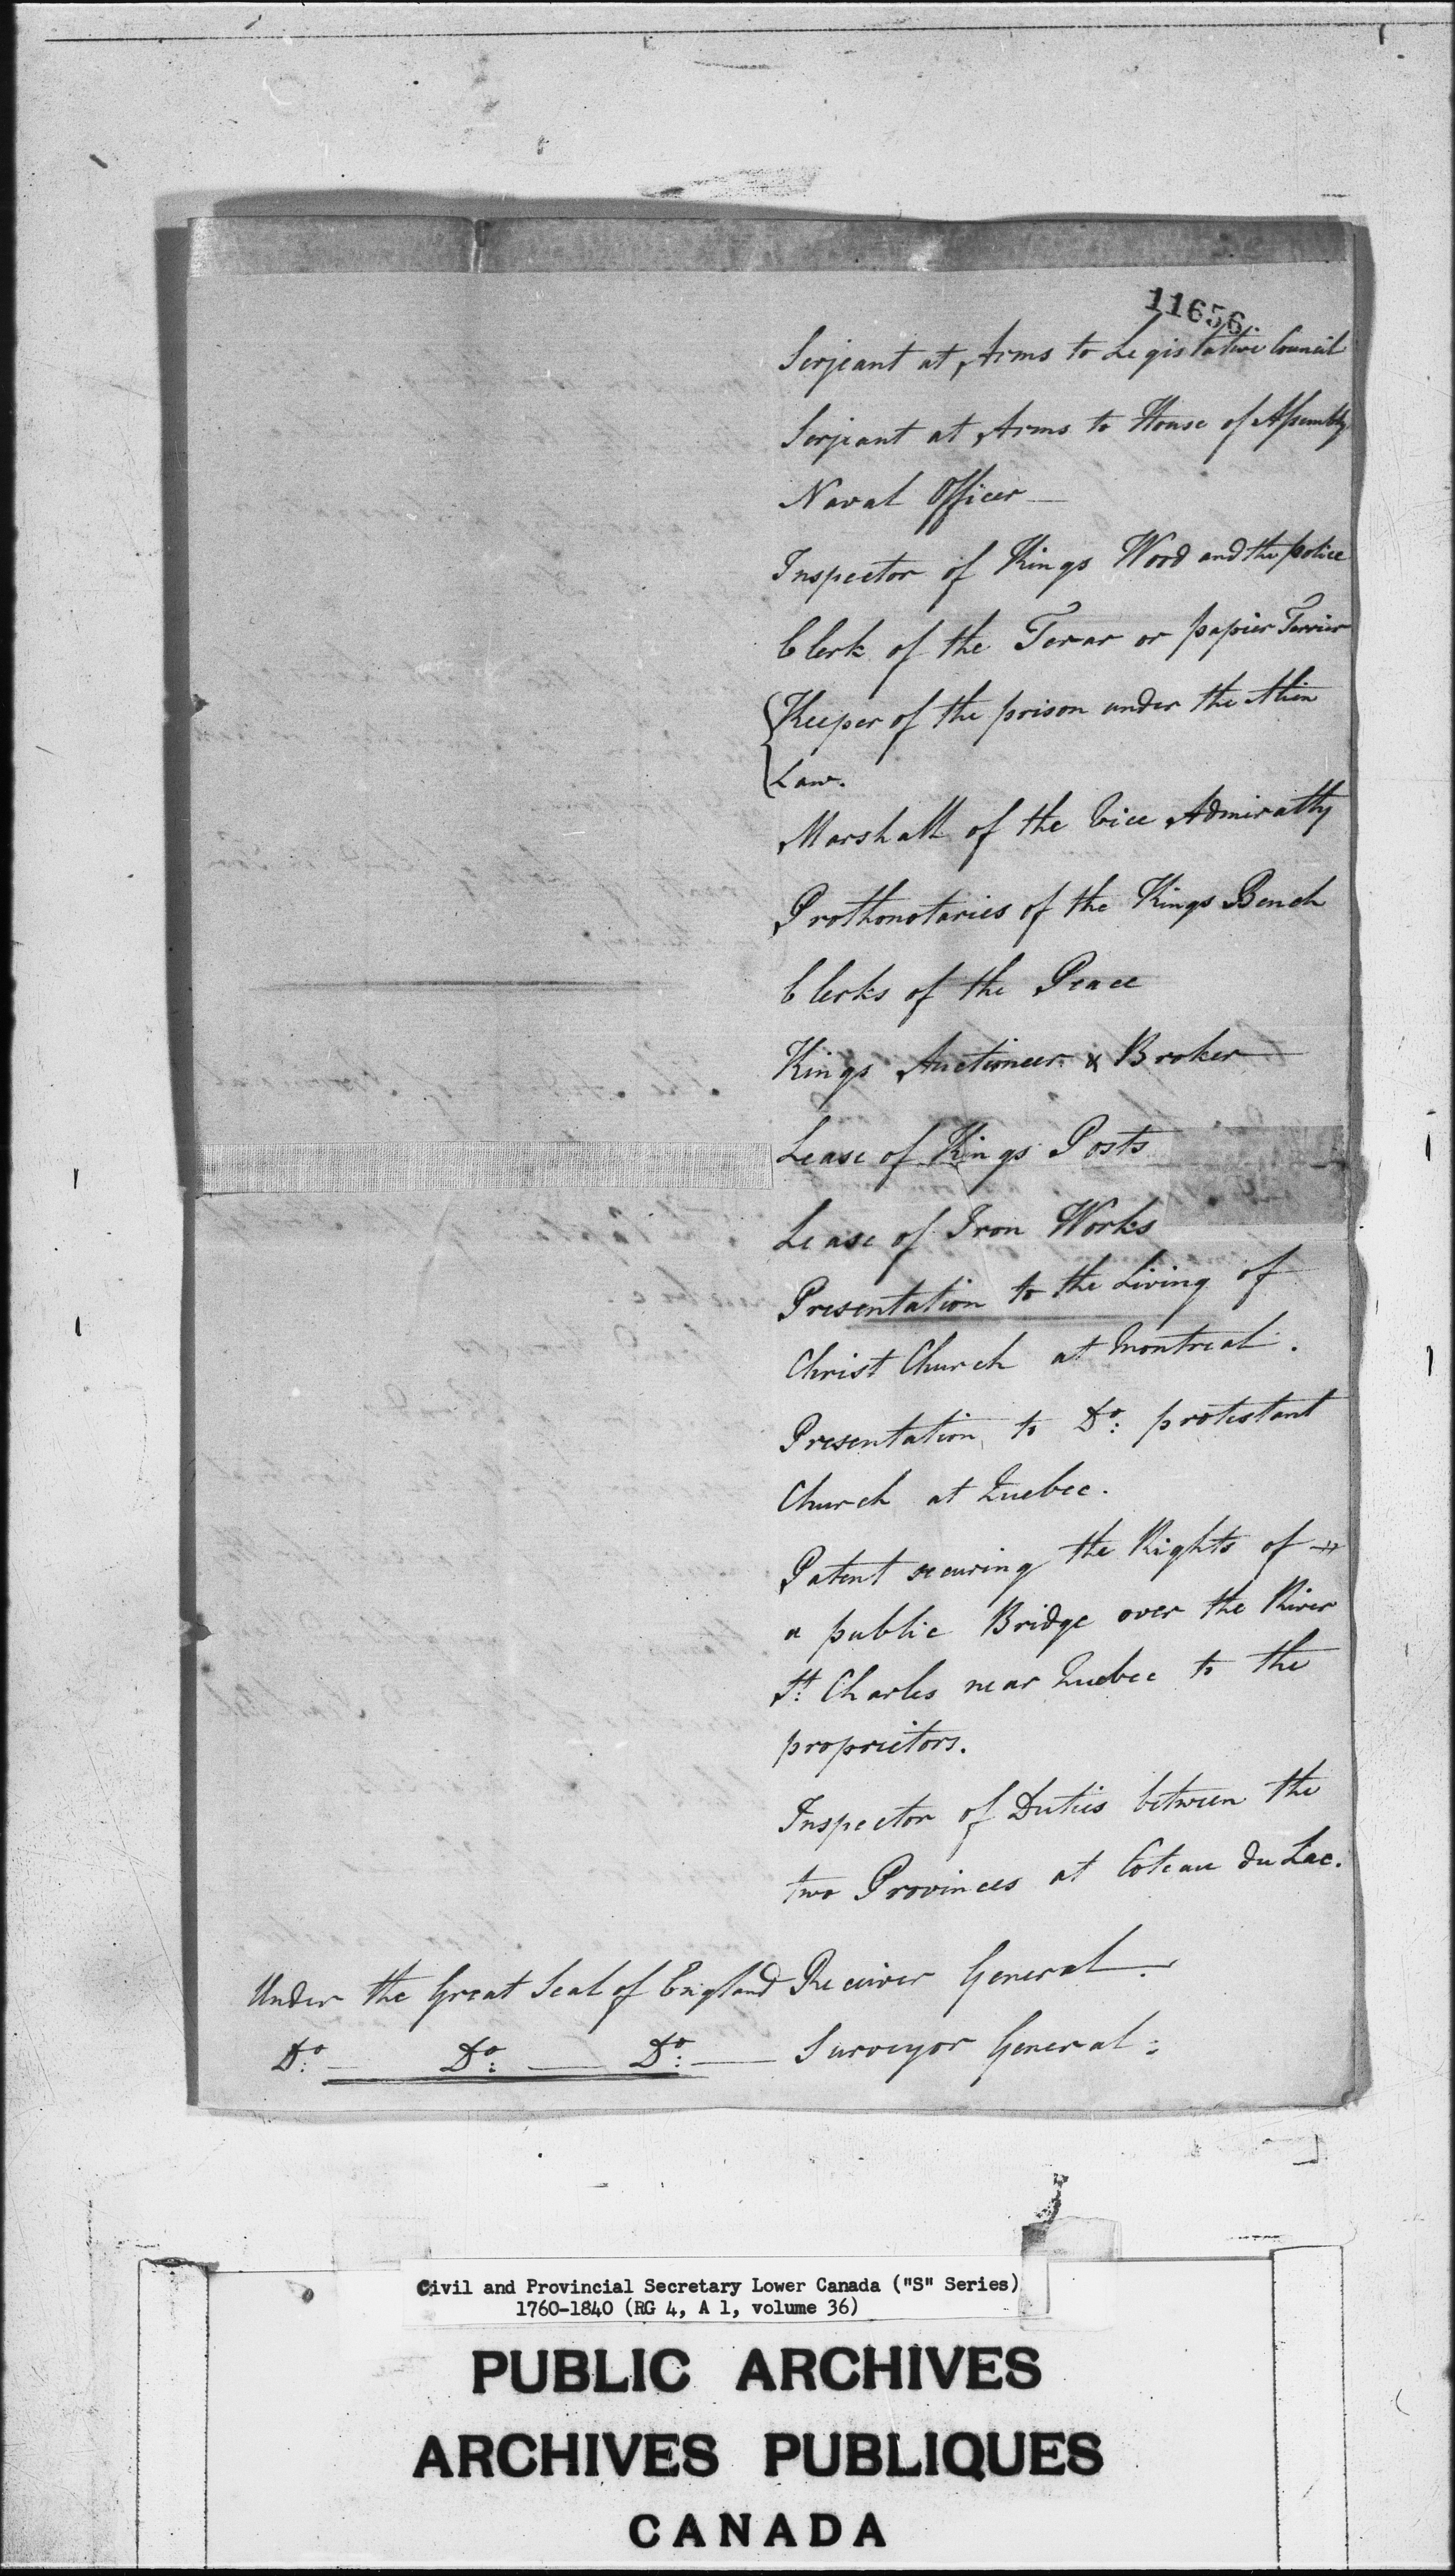 11656.
Serjeant at Arms to Legislative Council
Serjeant at Arms to House of Assembly
Naval Officer —
Inspector of Kings Wood and the police
Clerk of the Terrar or papier Terrier
Keeper of the prison under the Alien
Law.
Marshall of the Vice Admiralty
Prothonotaries of the Kings Bench
Clerks of the Peace
Kings Auctioneer & Broker
Lease of Kings Posts
Lease of Iron Works
Presentation to the Living of
Christ Church at Montreal.
Presentation to Do: protestant
Church at Quebec.
Patent securing the Rights of
a public Bridge over the River
St: Charles near Quebec to the
proprietors.
Inspector of Duties between the
two Provinces at Coteau du Lac.
Under the Great Seal of England Receiver General.
Do: — Do: — Do: — Surveyor General:
Civil and Provincial Secretary Lower Canada ("S" Series)
1760-1840 (RG 4, A 1, volume 36)
PUBLIC ARCHIVES
ARCHIVES PUBLIQUES
CANADA